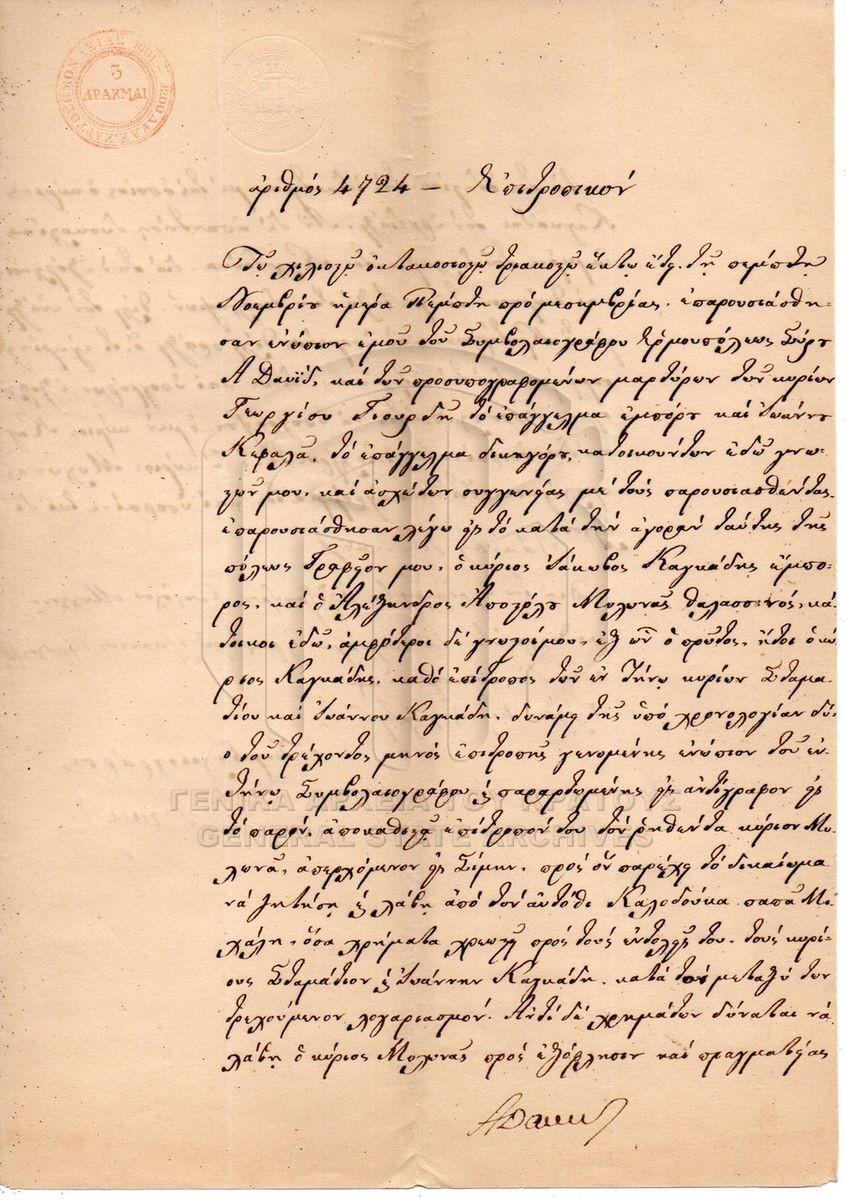 3
ΔΡΑΧΜΑΙ
ἀριθμός 4724 — Ἐπιτροπικόν
Τῷ χιλιοστῷ ὀκτακοσιοστῷ τριακοστῷ ἕκτῳ ἔτει τῇ πέμπτῃ
Νοεμβρίου ἡμέρᾳ Πέμπτῃ πρό μεσημβρίας, ἐπαρουσιάσθη-
σαν ἐνώπιον ἐμοῦ τοῦ Συμβολαιογράφου Ἑρμουπόλεως Σύρου
Α Δαυΐδ, καί τῶν προσυπογραφομένων μαρτύρων τῶν κυρίων
Γεωργίου Γιουρδῆ τό ἐπάγγελμα ἐμπόρου καί Ἰωάννου
Κεφαλᾶ, τό ἐπάγγελμα δικηγόρου, κατοικούντων ἐδῶ γνω-
στῶν μου, καί ἀσχέτων συγγενείας μέ τούς παρουσιασθέντας,
ἐπαρουσιάσθησαν λέγω εἰς τό κατά τήν ἀγοράν ταύτης τῆς
πόλεως Γραφεῖον μου, ὁ κύριος Ἰάκωβος Καγκάδης ἔμπο-
ρος, καί ὁ Ἀλέξανδρος Ἀποστόλου Μυλωνᾶς θαλασσινός, κά-
τοικοι ἐδῶ, ἀμφότεροι δέ γνωστοί μου, ἐξ ὧν ὁ πρῶτος, ἤτοι ὁ κύ-
ριος Καγκάδης, καθό ἐπίτροπος τῶν ἐν Τήνῳ κυρίων Σταμα-
τίου καί Ἰωάννου Καγκάδη, δυνάμει τῆς ὑπό χρονολογίαν δύ-
ο τοῦ τρέχοντος μηνός ἐπιτροπῆς γενομένης ἐνώπιον τοῦ ἐν
Τήνῳ Συμβολαιογράφου ϗ παραρτωμένης εἰς ἀντίγραφον εἰς
τό παρόν, ἀποκαθιστᾷ ἐπίτροπόν του τόν ῥηθέντα κύριον Μυ-
λωνᾶ, ἀπερχόμενον εἰς Σίμην, πρός ὅν παρέχει τό δικαίωμα
νά ζητήσῃ ϗ λάβῃ ἀπό τόν αὐτόθι Καλοδούκα παπᾶ Μι-
χάλη, ὅσα χρήματα χρεωστεῖ πρός τούς ἐντολεῖς του, τούς κυρί-
ους Σταμάτιον ϗ Ἰωάννην Καγκάδη, κατά τόν μεταξύ των
τρεχούμενον λογαριασμόν. Ἀντί δέ χρημάτων δύναται νά
λάβῃ ὁ κύριος Μυλωνᾶς πρός ἐξόφλησιν καί πραγματείας
ΑΔαυιδ
ΓΕΝΙΚΑ ΑΡΧΕΙΑ ΤΟΥ ΚΡΑΤΟΥΣ
GENERAL STATE ARCHIVES